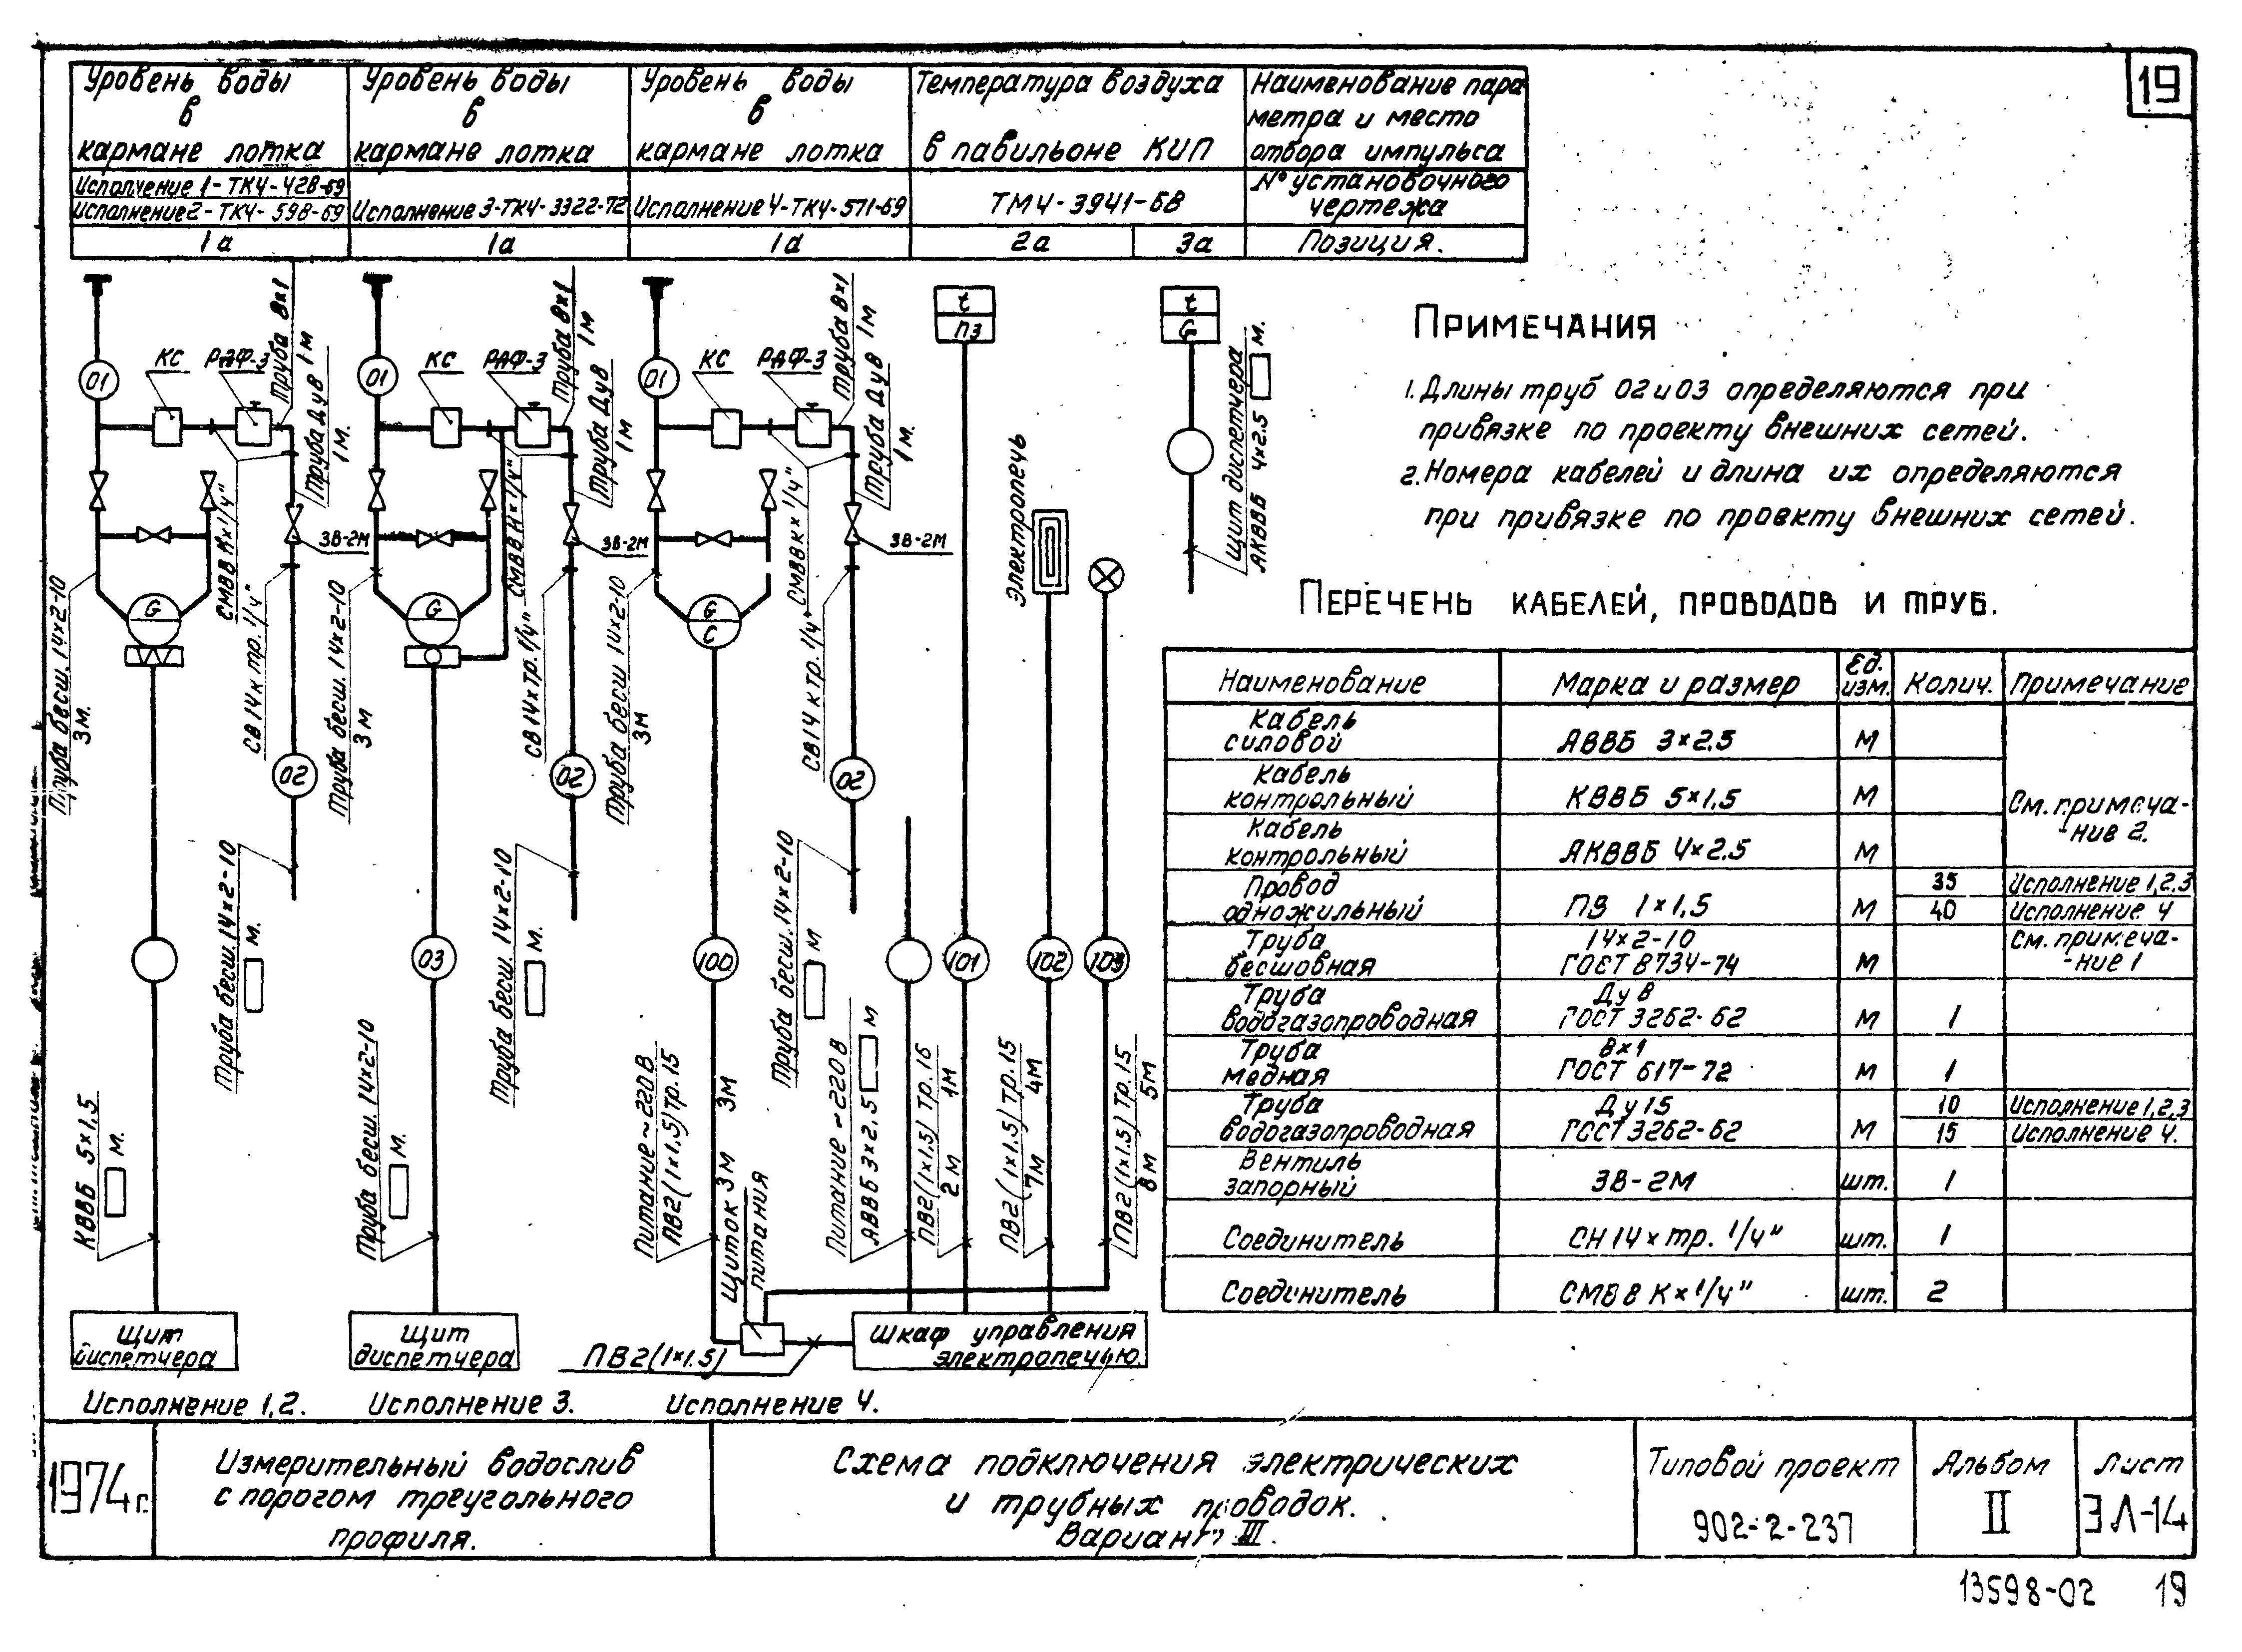 19
Уровень воды
в
кармане лотка
Уровень воды
в
кармане лотка
Уровень воды
в
кармане лотка
Температура воздуха
в павильоне КИП
Наименование пара
метра и место
отбора импульса
Исполнение 1-ТК4-428-69
Исполнение 2-ТК4-598-69
Исполнение 3-ТК4-3322-72
Исполнение 4-ТК4-571-69
ТМ4-3941-68
№ установочного
чертежа
1а
1а
1а
2а
3а
Позиция.
01
КС
РДФ-3
Труба 8×1
1м
Труба Ду8
1м.
СМВ8 К×1/4"
ЗВ-2М
Труба бесш. 14×2-10
3м.
G
СВ14к тр. 1/4"
02
Труба бесш. 14×2-10
м.
КВВБ 5×1,5
м.
Щит
диспетчера
Исполнение 1,2.
01
КС
РДФ-3
Труба 8×1
1м
Труба Ду8
1м
СМВ8 К×1/4"
ЗВ-2М
Труба бесш. 14×2-10
3м
G
СВ14×тр. 1/4"
02
Труба бесш. 14×2-10
м.
03
Труба бесш. 14×2-10
м.
Щит
диспетчера
Исполнение 3.
01
КС
РДФ-3
Труба 8×1
1м
Труба Ду8
1м.
СМВ8к×1/4"
ЗВ-2М
Труба бесш 14×2-10
3м
G
С
СВ14к тр. 1/4"
02
Труба бесш. 14×2-10
м
100
Питание~220В
ПВ2(1×1,5)тр.15
3м
3м
Щиток
питания
ПВ2(1×1.5)
Исполнение 4.
Питание ~220В
АВВБ 3×2,5 м
t
ПЗ
101
ПВ2(1×1.5) тр. 16
2м 1м
Электропечь
102
ПВ2(1×1.5) тр.15
7м 4м
103
ПВ2(1×1.5) тр.15
8м 5м
Шкаф управления
электропечью.
t
G
Щит диспетчера
АКВВБ 4×2.5 м.
Примечания
1. Длины труб 02 и 03 определяются при
привязке по проекту внешних сетей.
2. Номера кабелей и длина их определяются
при привязке по проекту внешних сетей.
Перечень кабелей, проводов и труб.
Наименование Марка и размер Ед. изм. Колич. Примечание
Кабель
силовой АВВБ 3×2.5 м
Кабель
контрольный КВВБ 5×1.5 м
См. примеча-
-ние 2.
Кабель
контрольный АКВВБ 4×2.5 м
Провод 35 Исполнение 1,2,3
одножильный ПВ 1×1,5 м 40 Исполнение 4
Труба 14×2-10 См. примеча-
бесшовная ГОСТ 8734-74 м -ние 1
Труба Ду 8
водогазопроводная ГОСТ 3262-62 м 1
Труба 8×1
медная ГОСТ 617-72 м 1
Труба Ду15 10 Исполнение 1,2,3
водогазопроводная ГОСТ 3262-62 м 15 Исполнение 4.
Вентиль
запорный ЗВ-2М шт. 1
Соединитель СН14×тр. 1/4" шт. 1
Соединитель СМВ8 К×1/4" шт. 2
1974г.
Измерительный водослив
с порогом треугольного
профиля.
Схема подключения электрических
и трубных проводок.
Вариант III.
Типовой проект
902-2-237
Альбом
II
Лист
ЭЛ-14
13598-02 19